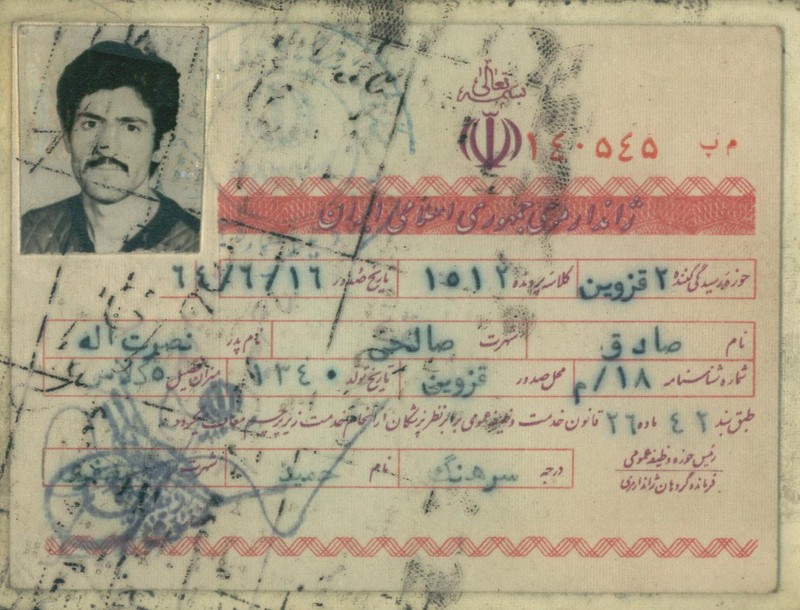 بسمه تعالی
م پ ۱۴۰۵۴۵
ژاندارمری جمهوری اسلامی ایران
حوزه رسیدگی کننده ۲ قزوین کلاسه پرونده ۱۵۱۲ تاریخ صدور ۶۴/۶/۱۶
نام صادق شهرت صالحی نام پدر نصرت اله
شماره شناسنامه ۱۸/م محل صدور قزوین تاریخ تولد ۱۳۴۰ میزان تحصیل ۵
طبق بند ۴۲ ماده ۲۶ قانون خدمت وظیفه عمومی برابر نظر پزشکان از انجام خدمت زیر پرچم معاف میگردد
رئیس حوزه وظیفه عمومی
فرمانده گروهان ژاندارمری
درجه سرهنگ نام حمید شهرت